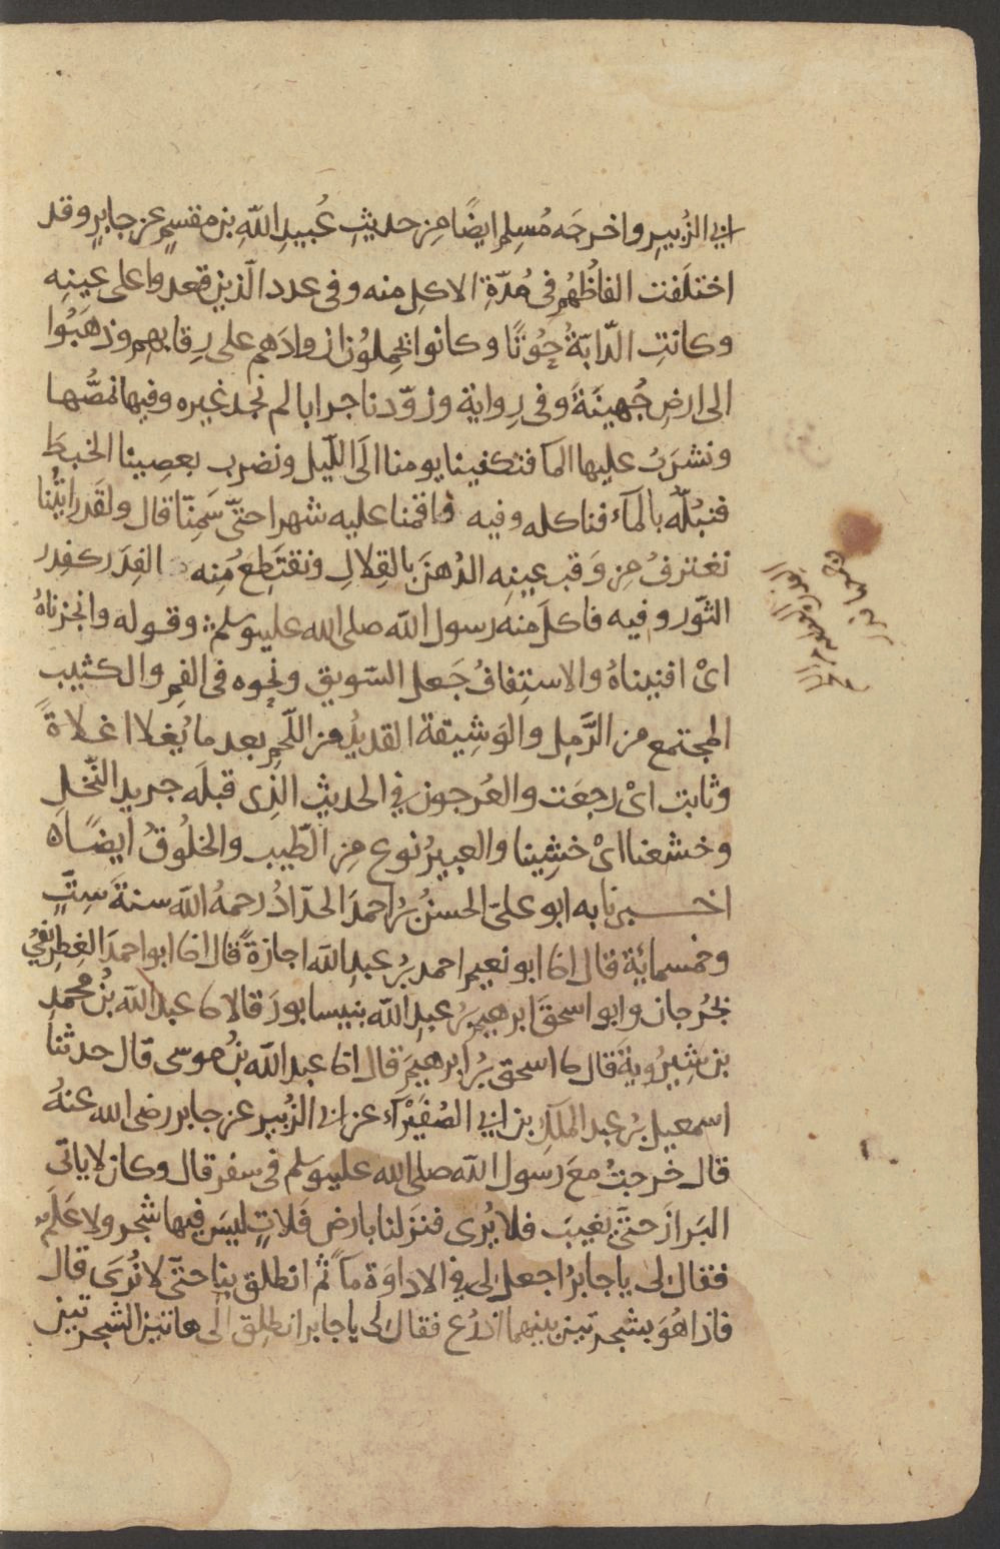 ابي الزُبيرِ واخرجَه مُسلِم ايضًا مِن حديثِ عُبيدِ اللّهِ بن مقسمٍ عن جابرٍ وقد
اختلَفت الفاظُهُم في مُدّةِ الاكلِ منه وفي عدد الّذين قعدوا على عينِه
وكانتِ الدّابّةُ حُوتًا وكانوا يحمِلُون ازوادَهم على رِقابِهم وذهَبُوا
الى ارضِ جُهينَةَ وفي رِواية وزوّدنا جرابا لم نجد غيره وفيها نمصُّها
ونشرَبُ عليها الماَ فتكفينا يومنا الَى اللّيل ونضرب بعصِينا الخبطَ
فنبُلّه بالماء فناكله وفيه فاقمنا عليه شهرا حتّى سَمِنّا قال ولقَد رايتُنا
نغترفُ مِن وَقب عينِه الدُهنَ بالقِلالِ ونقتَطِعُ مِنه الفِدَر كفِدر
الثّور وفيه فاكلَ منه رسول اللّه صلى الله عليه وسلم وقوله وانجزناهُ
اىْ افنيناهُ والاستِفافُ جَعل السّويقِ ونحوه في الفمِ والكثيب
المجتمع من الرَّمِل والوَشِيقة القديدُ من اللّحمِ بعد ما يُغلا اغلاةً
وثابت اىْ رجعَت والعُرجون في الحديثِ الذِى قبلَه جريد النّخلِ
وخشعنا اىْ خشِينا والعبيرُ نوع مِن الطّيب والخلُوقُ ايضًا ه
اخبرنا به ابو علىّ الحسنُ بنُ احمدَ الحدّادُ رحمهُ اللّه سنةَ سِتٍّ
وخمسمائة قال انا ابو نعيم احمد بنُ عبدِ اللّه اجازةً قال انا ابو احمدَ الغِطرِيفيُ
بجُرجان وابو اسحقَ ابرهيم بنُ عبدِ اللّه بنيسابورَ قالا نا عبد اللّه بنُ محمّدِ
بن شِيرُويةَ قال نا اسحق بنُ ابرهيمَ قال انا عبد اللّه بنُ موسى قال حدثنا
اسمعيل بنُ عبد الملكِ بن ابي الصُفَيْرَآء عن ابي الزُبيرِ عن جابر رضى الله عنهُ
قال خرجتُ معَ رسول اللّه صلى الله عليه وسلم في سفر قال وكان لا ياتى
البَرازَ حتىَّ يغيبَ فلا يُرى فنزلنا بارض فلاتٍ ليسَ فيها شجر ولا عَلَم
فقال لى يا جابرُ اجعل لى في الاداوَة مآً ثم انطلق بنا حتىّ لا نُرَى قال
فاذا هُوَ بشجرتين بينهما اذرُع فقال لى يا جابر انطلِق الى هاتين الشجرتين